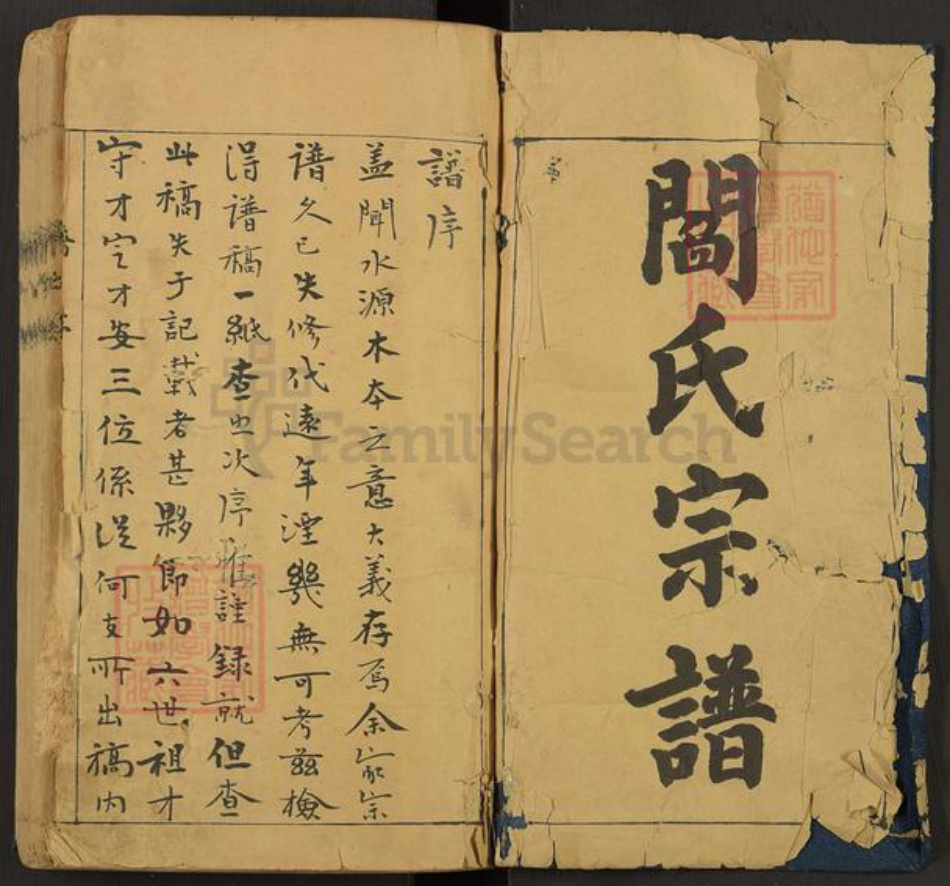 閻氏宗譜
譜序
盖聞水源木本之意大義存焉余家宗
譜久已失修代遠年湮幾無可考兹檢
得譜稿一紙查世次序雖謹録就但查
此稿失于記載者甚夥節如六世祖才
守才定才安三位係從何支所出稿内
FamilySearch